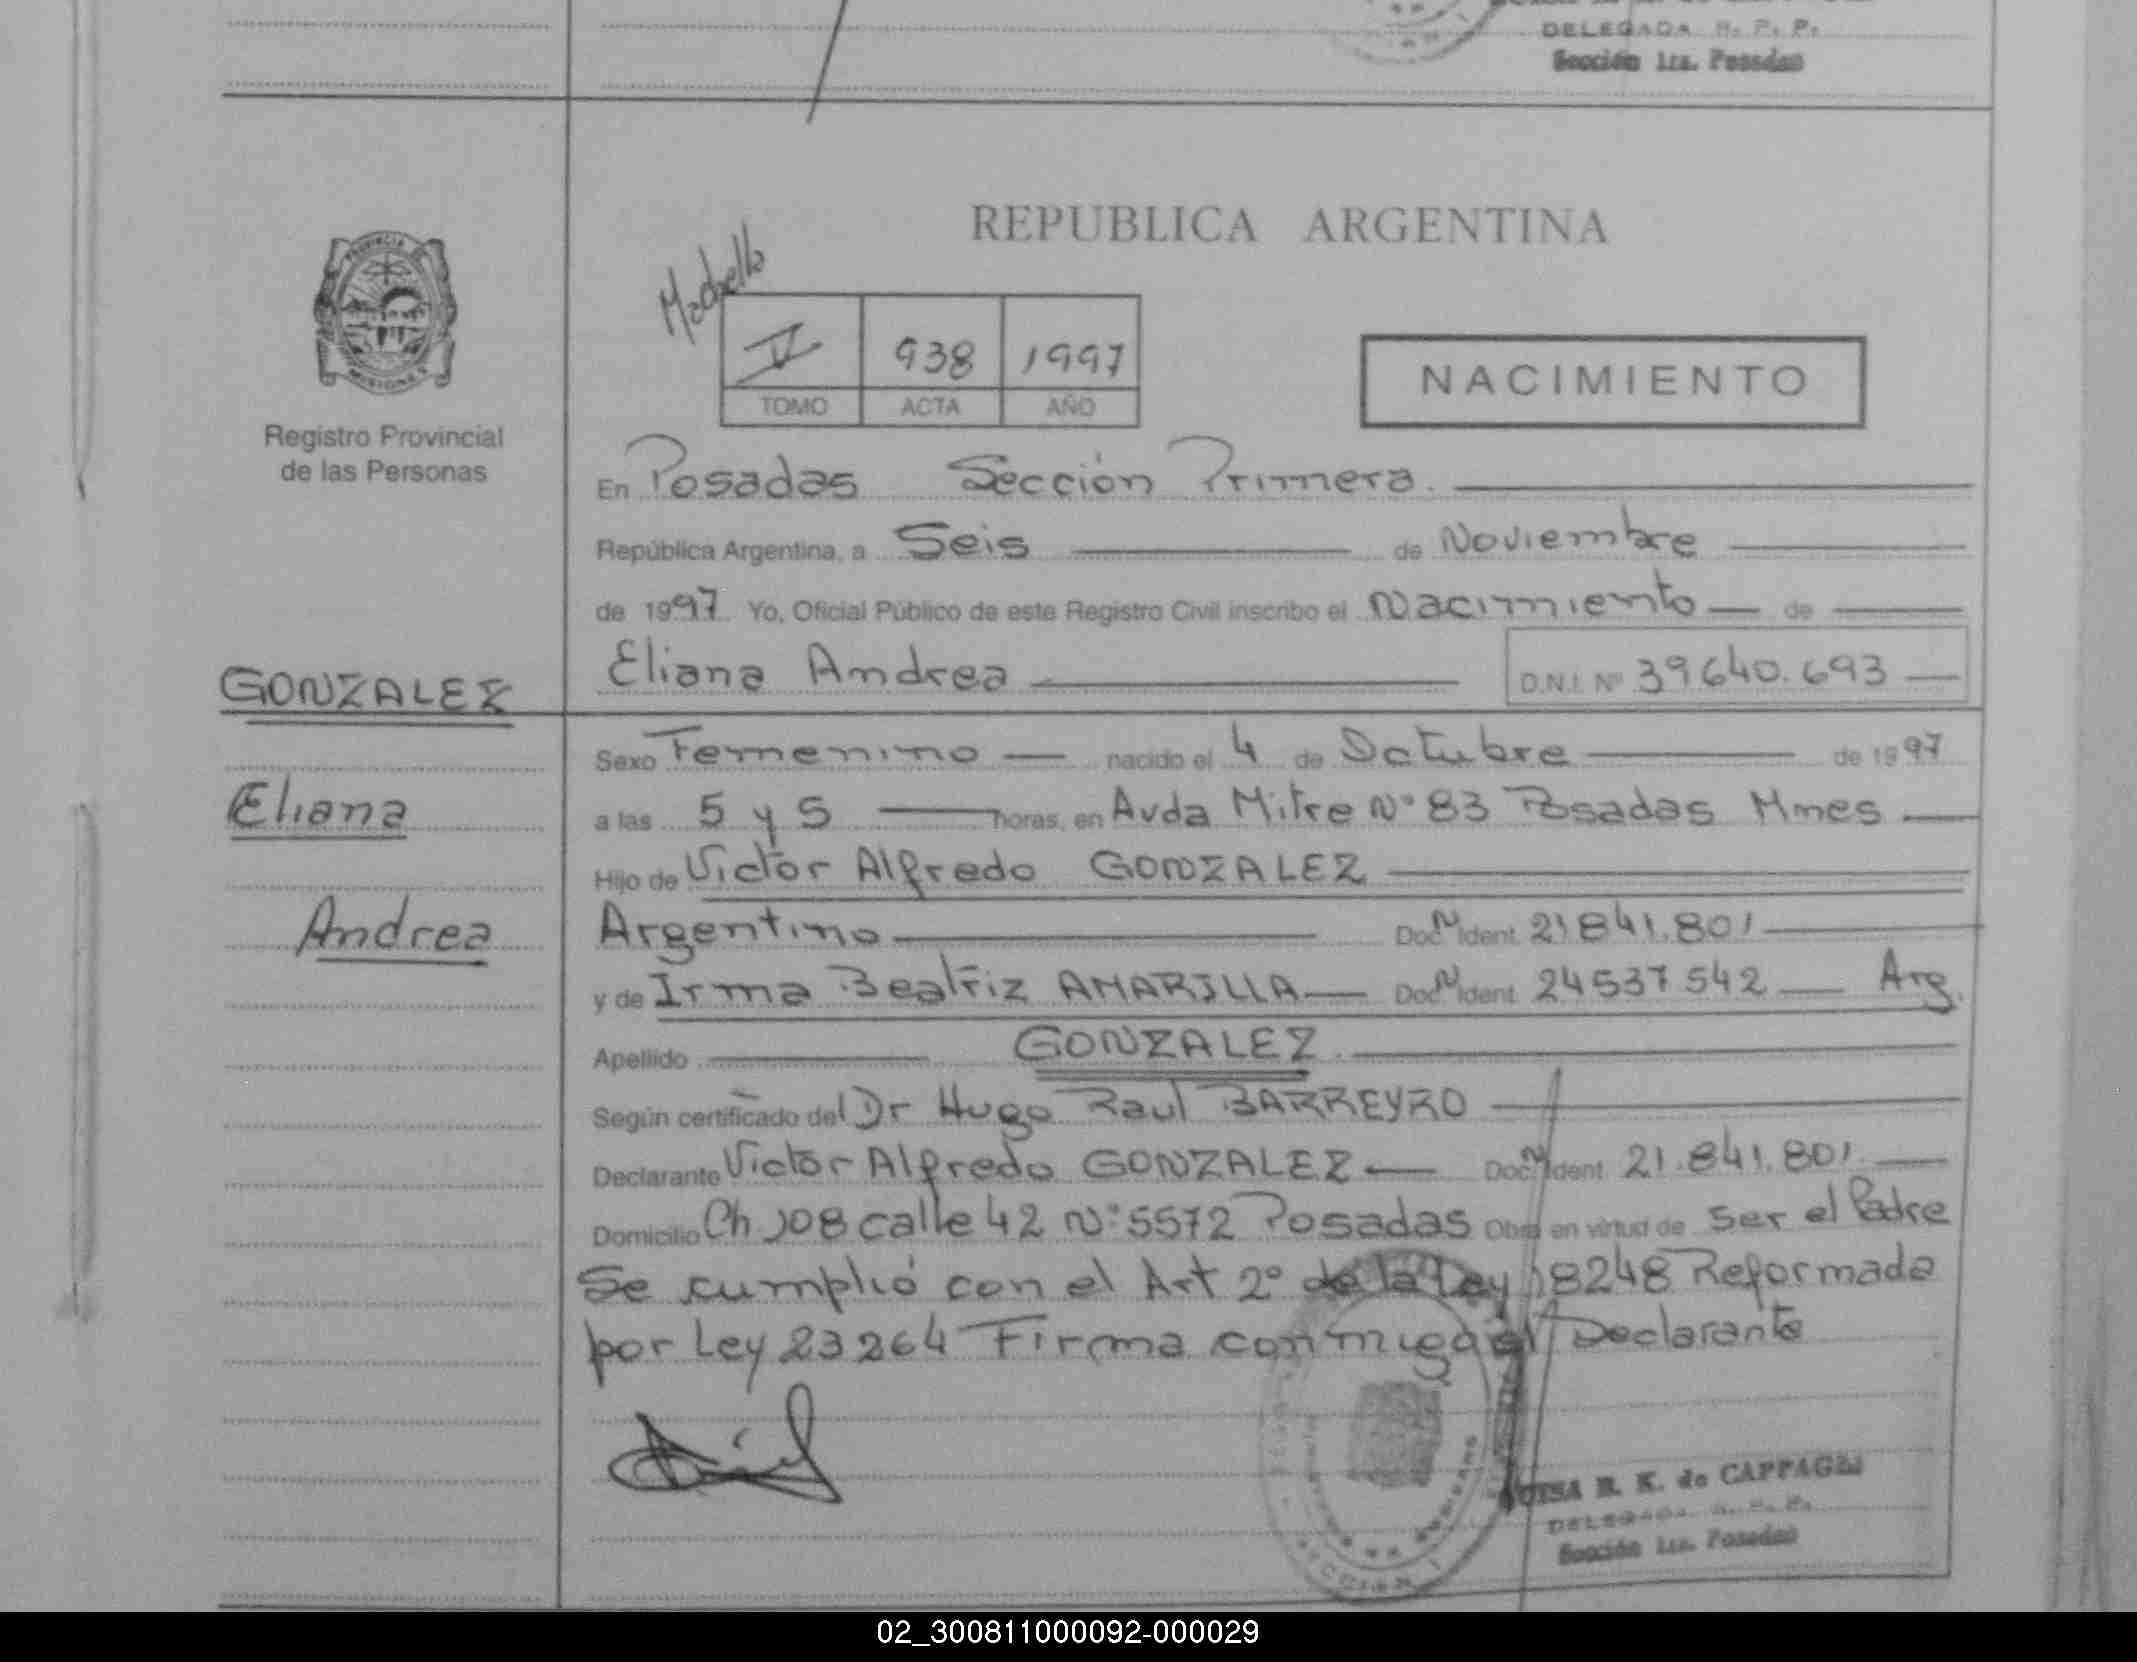 DELEGADA R. P. P.
Sección 1ra. Posadas
REPUBLICA ARGENTINA
PROVINCIA DE
MISIONES
Registro Provincial
de las Personas
V 938 1997
TOMO ACTA AÑO
NACIMIENTO
En Posadas Sección Primera.
República Argentina, a Seis de Noviembre
de 1997 Yo, Oficial Público de este Registro Civil inscribo el Nacimiento de
GONZALEZ
Eliana Andrea D.N.I. Nº 39640.693
Sexo Femenino nacido el 4 de Octubre de 1997
Eliana
a las 5 y 5 horas, en Avda Mitre Nº 83 Posadas Mnes
Hijo de Victor Alfredo GONZALEZ
Andrea
Argentino Doc N Ident. 21841.801
y de Irma Beatriz AMARILLA Doc N Ident. 24537542 Arg.
Apellido GONZALEZ.
Según certificado del Dr Hugo Raul BARREYRO
Declarante Victor Alfredo GONZALEZ Doc N Ident. 21.841.801
Domicilio Ch 108 calle 42 Nº 5572 Posadas Obra en virtud de ser el Padre
Se cumplió con el Art 2º de la Ley 18248 Reformada
por Ley 23264 Firma conmigo el Declarante
R. K. de CAPPAGLI
DELEGADA R. P. P.
Sección 1ra. Posadas
02_300811000092-000029